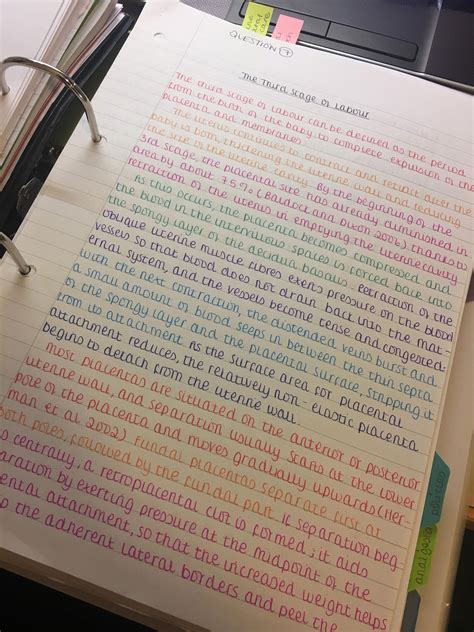 QUESTION 7
The Third Stage of Labour
The third stage of labour can be defined as the period
from the birth of the baby to complete expulsion of the
placenta and membranes.
The uterus continues to contract and retract after the
baby is born, thickening the uterine wall and reducing
the size of the uterine cavity. By the beginning of the
3rd stage, the placental site has already diminished in
area by about 75% (Baldock and Dixon 2006) thanks to
retraction of the uterus in emptying the uterine cavity
As this occurs, the placenta becomes compressed and
the blood in the intervillous spaces is forced back into
the spongy layer of the decidua basalis. Retraction of the
oblique uterine muscle fibres exerts pressure on the blood
vessels so that blood does not drain back into the mat-
ernal system, and the vessels become tense and congested.
With the next contraction, the distended veins burst and
a small amount of blood seeps in between the thin septa
of the spongy layer and the placental surface, stripping it
from its attachment. As the surface area for placental
attachment reduces, the relatively non-elastic placenta
begins to detach from the uterine wall.
Most placentas are situated on the anterior or posterior
uterine wall, and separation usually starts at the lower
pole of the placenta and moves gradually upwards (Her-
man et al. 2002) Fundal placentas separate first at
both poles, followed by the fundal part. If separation beg-
s centrally, a retroplacental clot is formed; it aids
aration by exerting pressure at the midpoint of the
ental attachment, so that the increased weight helps
p the adherent lateral borders and peel the
policies
analgesia